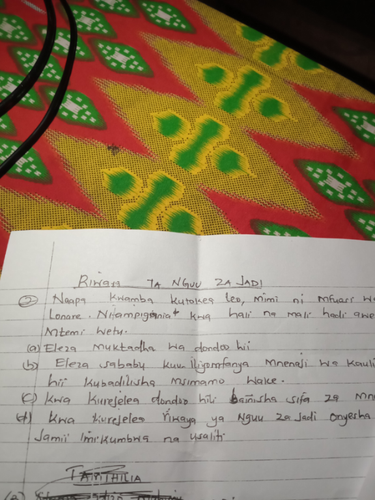 Riwaya YA NGUU ZA JADI
② Naapa kwamba kutokea leo, mimi ni mfuasi wa
Lonare. Nitampigania kwa hali na mali hadi awe
Mtemi wetu.
(a) Eleza muktadha wa dondoo hii
(b) Eleza sababu kuu iliyomfanya mnenaji wa kauli
hii kubadilisha msimamo wake.
(c) Kwa kurejelea dondoo hili bainisha sifa za
(d) Kwa kurejelea riwaya ya Nguu za Jadi onyesha
Jamii imekumbwa na usaliti
TAMTHILIA